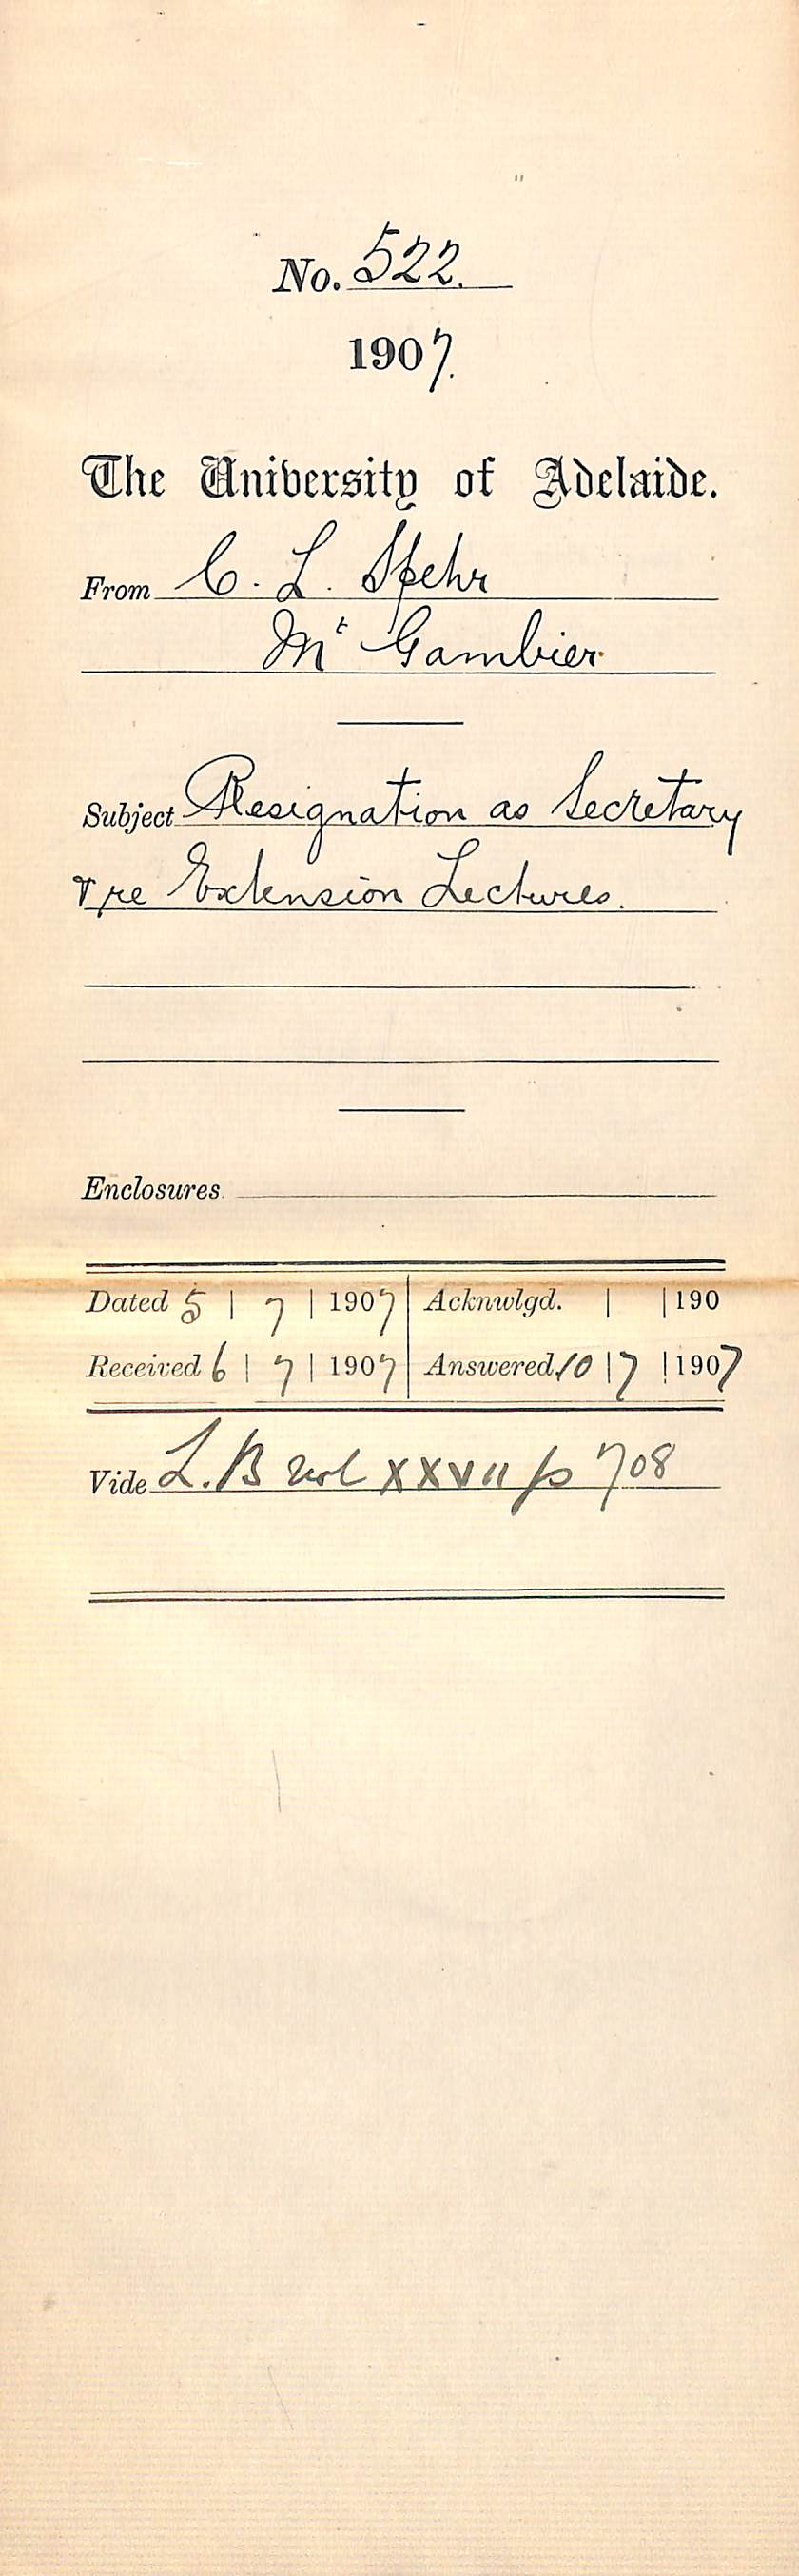 No. 522.
1907.
The University of Adelaide.
From C. L. Spehr
Mt Gambier.
Subject Resignation as Secretary
& re Extension Lectures.
Enclosures
Dated 5 | 7 | 1907 Acknwlgd. | | 190
Received 6 | 7 | 1907 Answered 10 | 7 | 1907
Vide L.B vol XXVII p 708